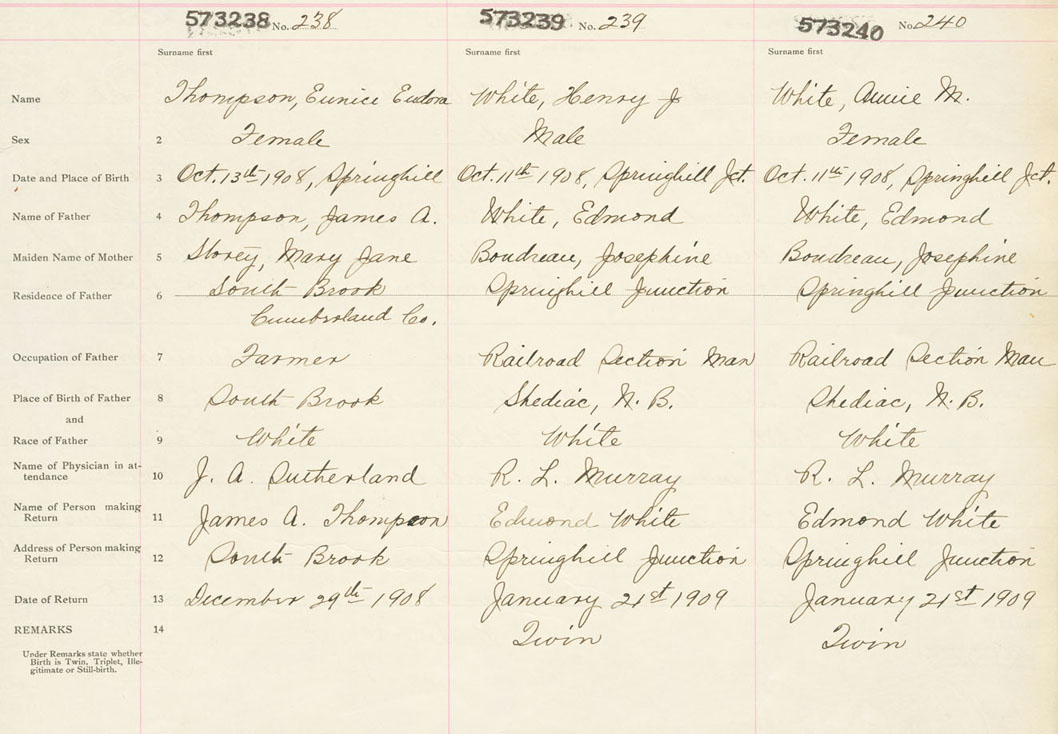 573238 No. 238 573239 No. 239 573240 No. 240
Surname first Surname first Surname first
Name Thompson, Eunice Eudora White, Henry J White, Annie M.
Sex 2 Female Male Female
Date and Place of Birth 3 Oct. 13th 1908, Springhill Oct. 11th 1908, Springhill Jct. Oct. 11th 1908, Springhill Jct.
Name of Father 4 Thompson, James A. White, Edmond White, Edmond
Maiden Name of Mother 5 Storey, Mary Jane Boudreau, Josephine Boudreau, Josephine
Residence of Father 6 South Brook Springhill Junction Springhill Junction
Cumberland Co.
Occupation of Father 7 Farmer Railroad Section Man Railroad Section Man
Place of Birth of Father 8 South Brook Shediac, N. B. Shediac, N. B.
and
Race of Father 9 White White White
Name of Physician in at-
tendance 10 J. A. Sutherland R. L. Murray R. L. Murray
Name of Person making
Return 11 James A. Thompson Edmond White Edmond White
Address of Person making
Return 12 South Brook Springhill Junction Springhill Junction
Date of Return 13 December 29th 1908 January 21st 1909 January 21st 1909
REMARKS 14 Twin Twin
Under Remarks state whether
Birth is Twin, Triplet, Ille-
gitimate or Still-birth.